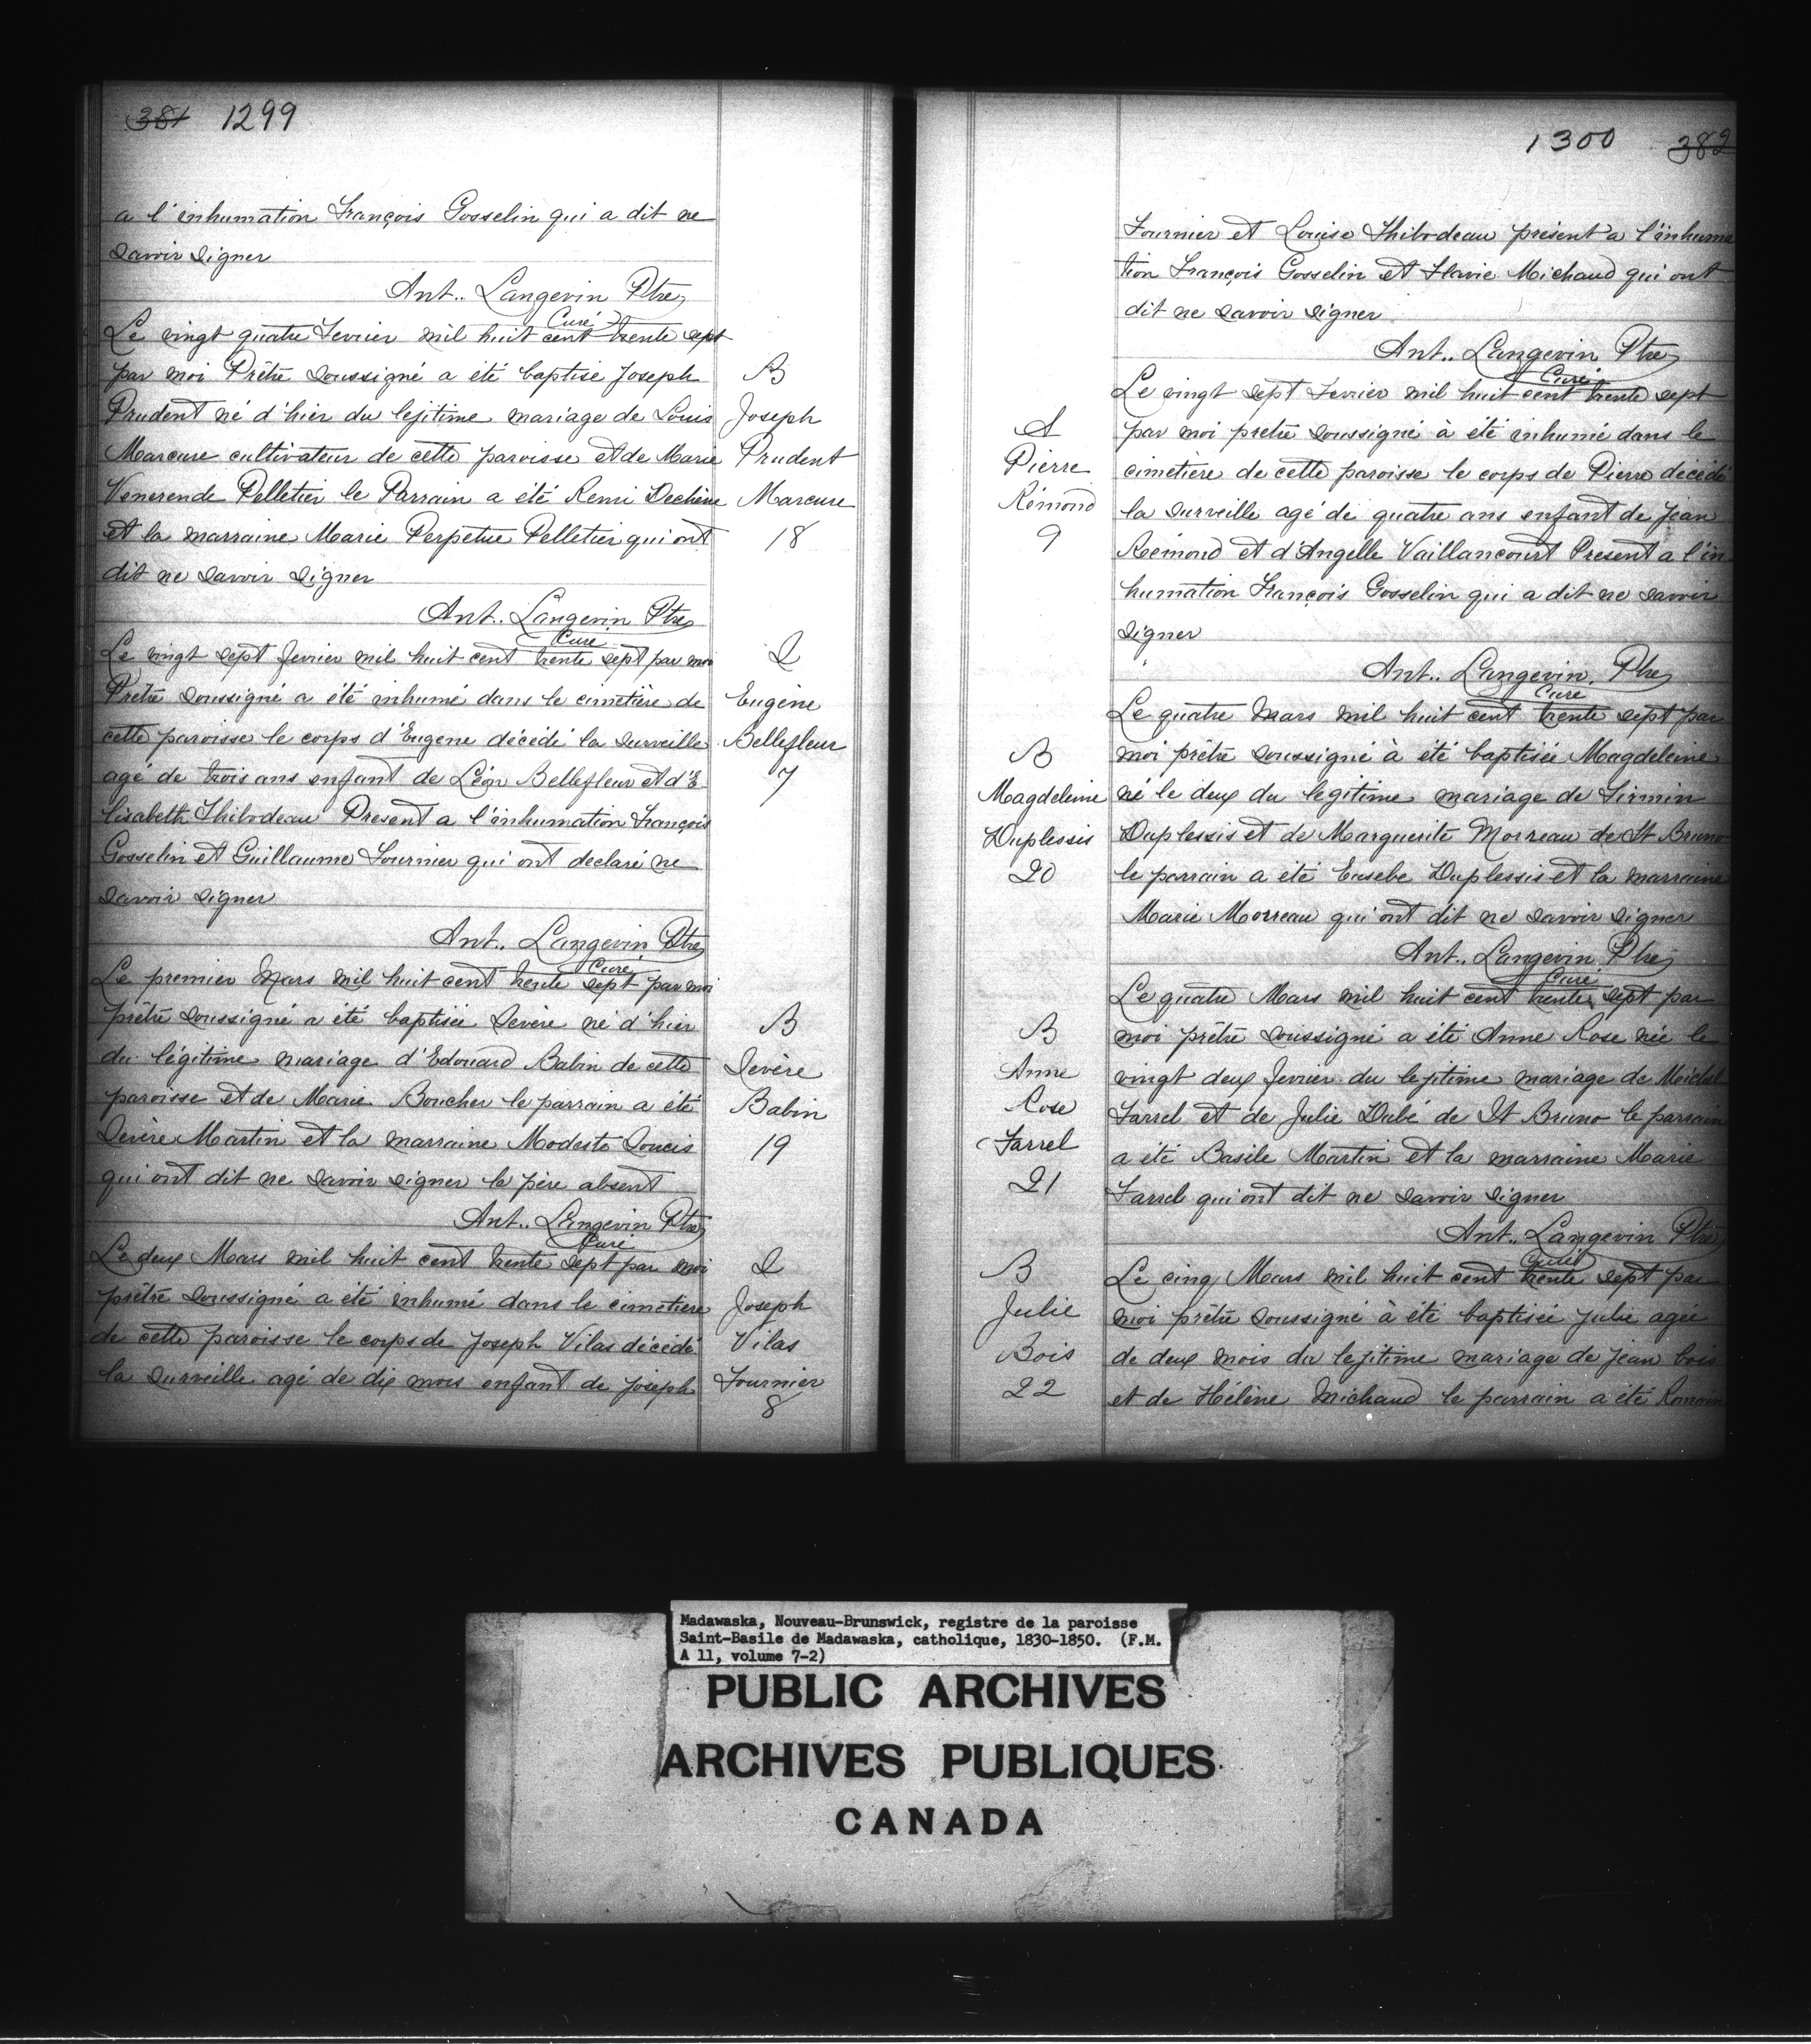 381 1299
a l'inhumation François Gosselin qui a dit ne
savoir signer
Ant.. Langevin Ptre
Curé
Le vingt quatre Fevrier mil huit cent trente sept
par moi Prêtre soussigné a été baptisé Joseph
Prudent né d'hier du legitime mariage de Louis
Marcure cultivateur de cette paroisse et de Marie
Venerende Pelletier le Parrain a été Remi Dechène
et la marraine Marie Perpetue Pelletier qui ont
dit ne savoir signer
B
Joseph
Prudent
Marcure
18
Ant.. Langevin Ptre
Curé
Le vingt sept fevrier mil huit cent trente sept par moi
Prêtre soussigné a été inhumé dans le cimetière de
cette paroisse le corps d'Eugene décédé la surveille
agé de trois ans enfant de Léon Bellefleur et d'E
lisabeth Thibodeau Present a l'inhumation François
Gosselin et Guillaume Fournier qui ont declaré ne
savoir signer
S
Eugène
Bellefleur
7
Ant.. Langevin Ptre
Curé
Le premier Mars mil huit cent trente sept par moi
prêtre soussigné a été baptisée Sevère né d'hier
du légitime mariage d'Edouard Babin de cette
paroisse et de Marie Boucher le parrain a été
Sevère Martin et la marraine Modeste Soucis
qui ont dit ne savoir signer le père absent
B
Sevère
Babin
19
Ant.. Langevin Ptre
Curé
Le deux Mars mil huit cent trente sept par moi
prêtre soussigné a été inhumé dans le cimetiere
de cette paroisse le corps de Joseph Vilas décédé
la surveille agé de dix mois enfant de Joseph
S
Joseph
Vilas
Fournier
8
1300 382
Fournier et Louise Thibodeau présent a l'inhuma
tion François Gosselin et Flavie Michaud qui ont
dit ne savoir signer
Ant.. Langevin Ptre
Curé
Le vingt sept Fevrier mil huit cent trente sept
par moi pretre soussigné à été inhumé dans le
cimetière de cette paroisse le corps de Pierre décédé
la surveille agé de quatre ans enfant de Jean
Rémond et d'Angelle Vaillancourt Present a l'in
humation François Gosselin qui a dit ne savoir
signer
S
Pierre
Rémond
9
Ant.. Langevin Ptre
Curé
Le quatre Mars mil huit cent trente sept par
moi prêtre soussigné à été baptisée Magdeleine
né le deux du legitime mariage de Firmin
Duplessis et de Marguerite Morreau de St Bruno
le parrain a été Eusebe Duplessis et la marraine
Marie Morreau qui ont dit ne savoir signer
B
Magdeleine
Duplessis
20
Ant.. Langevin Ptre
Curé
Le quatre Mars mil huit cent trente sept par
moi prêtre soussigné a été Anne Rose née le
vingt deux fevrier du lejitime mariage de Michel
Farrel et de Julie Dubé de St Bruno le parrain
a été Basile Martin et la marraine Marie
Farrel qui ont dit ne savoir signer
B
Anne
Rose
Farrel
21
Ant.. Langevin Ptre
Curé
Le cinq Mars mil huit cent trente sept par
moi prêtre soussigné à été baptisée Julie agée
de deux mois du lejitime mariage de Jean bois
et de Hélène Michaud le parrain a été Romain
B
Julie
Bois
22
Madawaska, Nouveau-Brunswick, registre de la paroisse
Saint-Basile de Madawaska, catholique, 1830-1850. (F.M.
A 11, volume 7-2)
PUBLIC ARCHIVES
ARCHIVES PUBLIQUES
CANADA